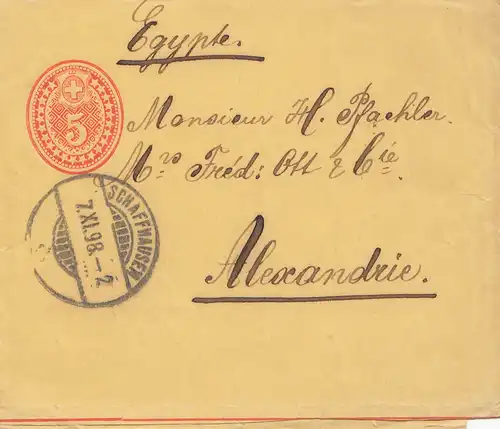 Egypte.
5
Monsieur H. Pfaehler.
Mrs Fréd: Ott & Cie
SCHAFFHAUSEN
7.XI.98.-2
Alexandrie.